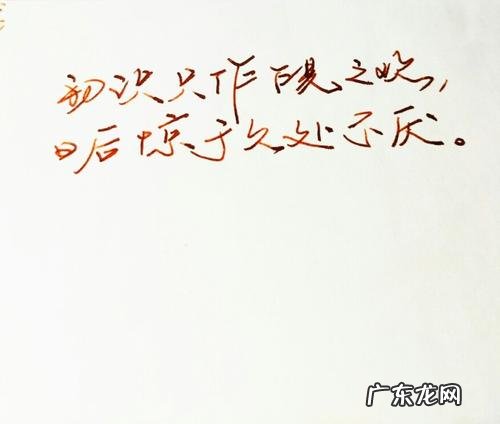 初识只作乍见之欢，
日后惊于久处不厌。
广东龙网